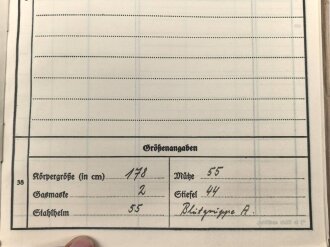 Größenangaben
Körpergröße (in cm) 178 Mütze 55
38
Gasmaske 2 Stiefel 44
Stahlhelm 55 Blutgruppe A.